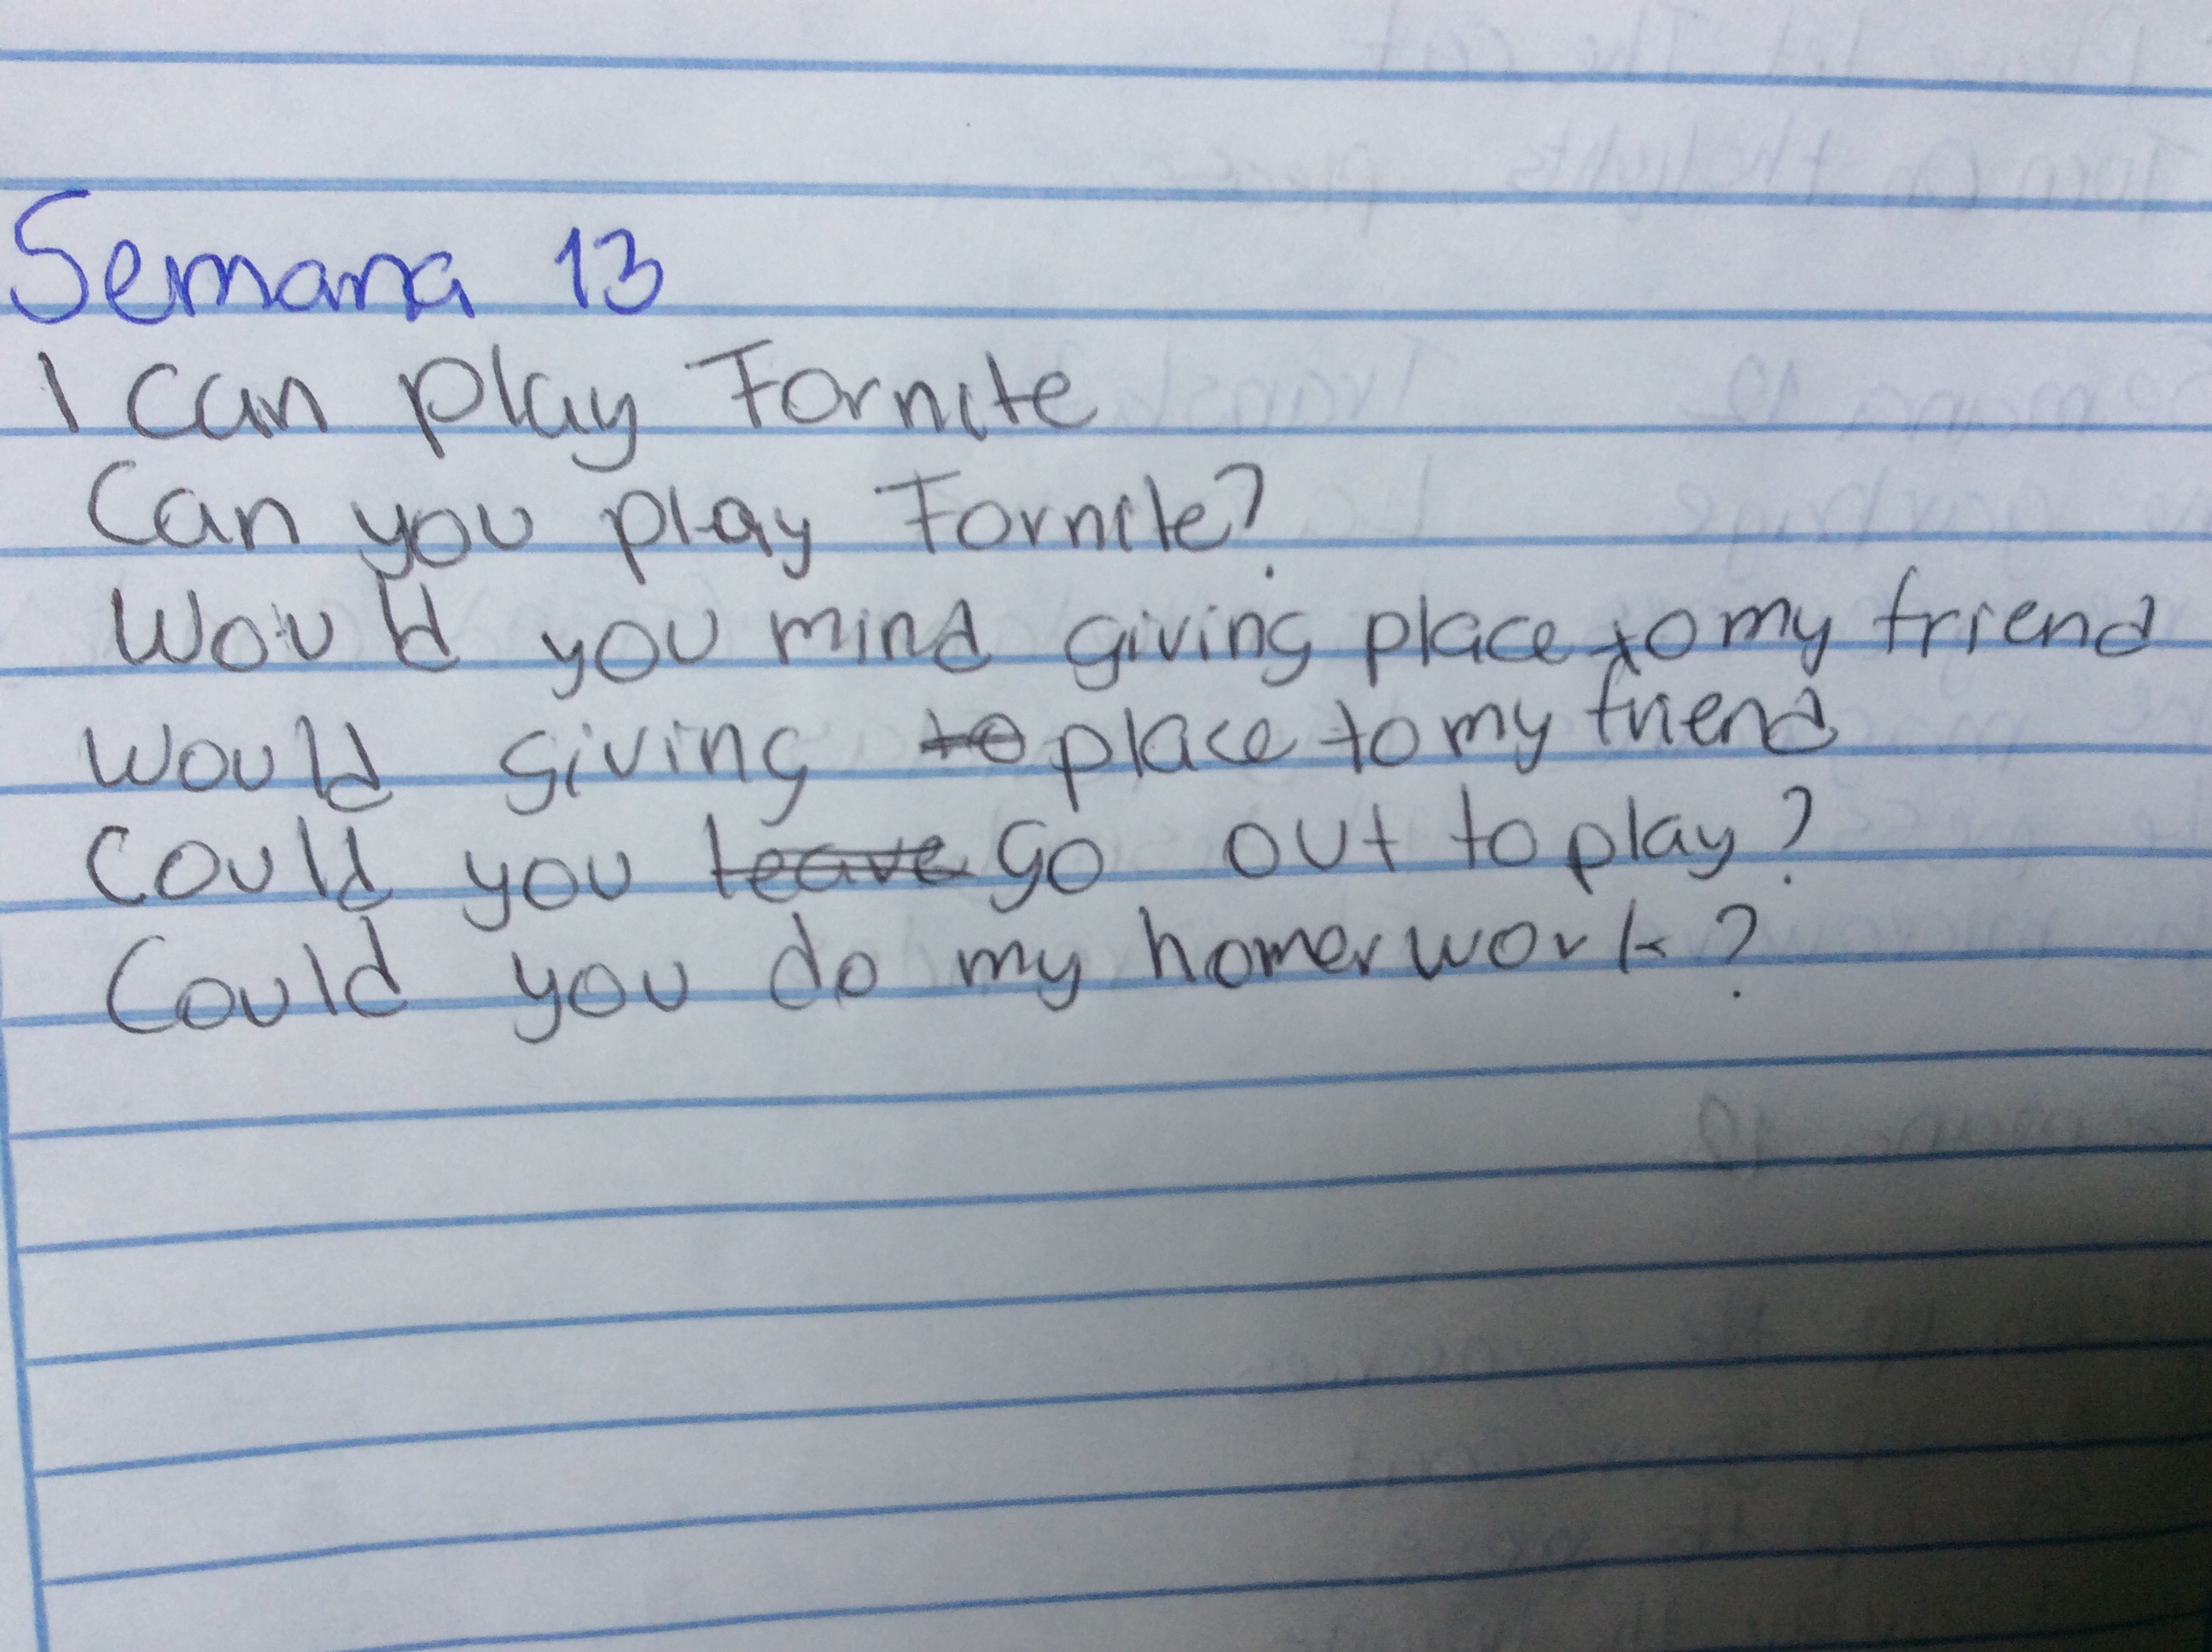 Semana 13
I can play Fornite
Can you play Fornite?
Would you mind giving place to my friend
Would giving to place to my friend
Could you leave go out to play?
Could you do my homerwork?